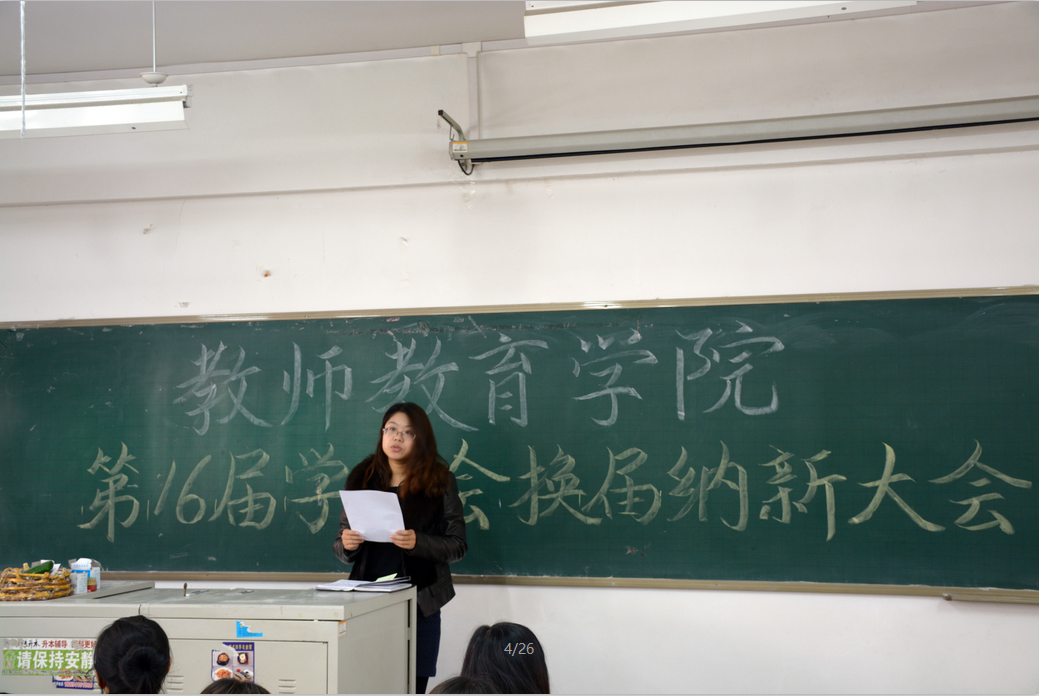 教师教育学院
第16届学 会换届纳新大会
升本辅导
请保持安静
4/26